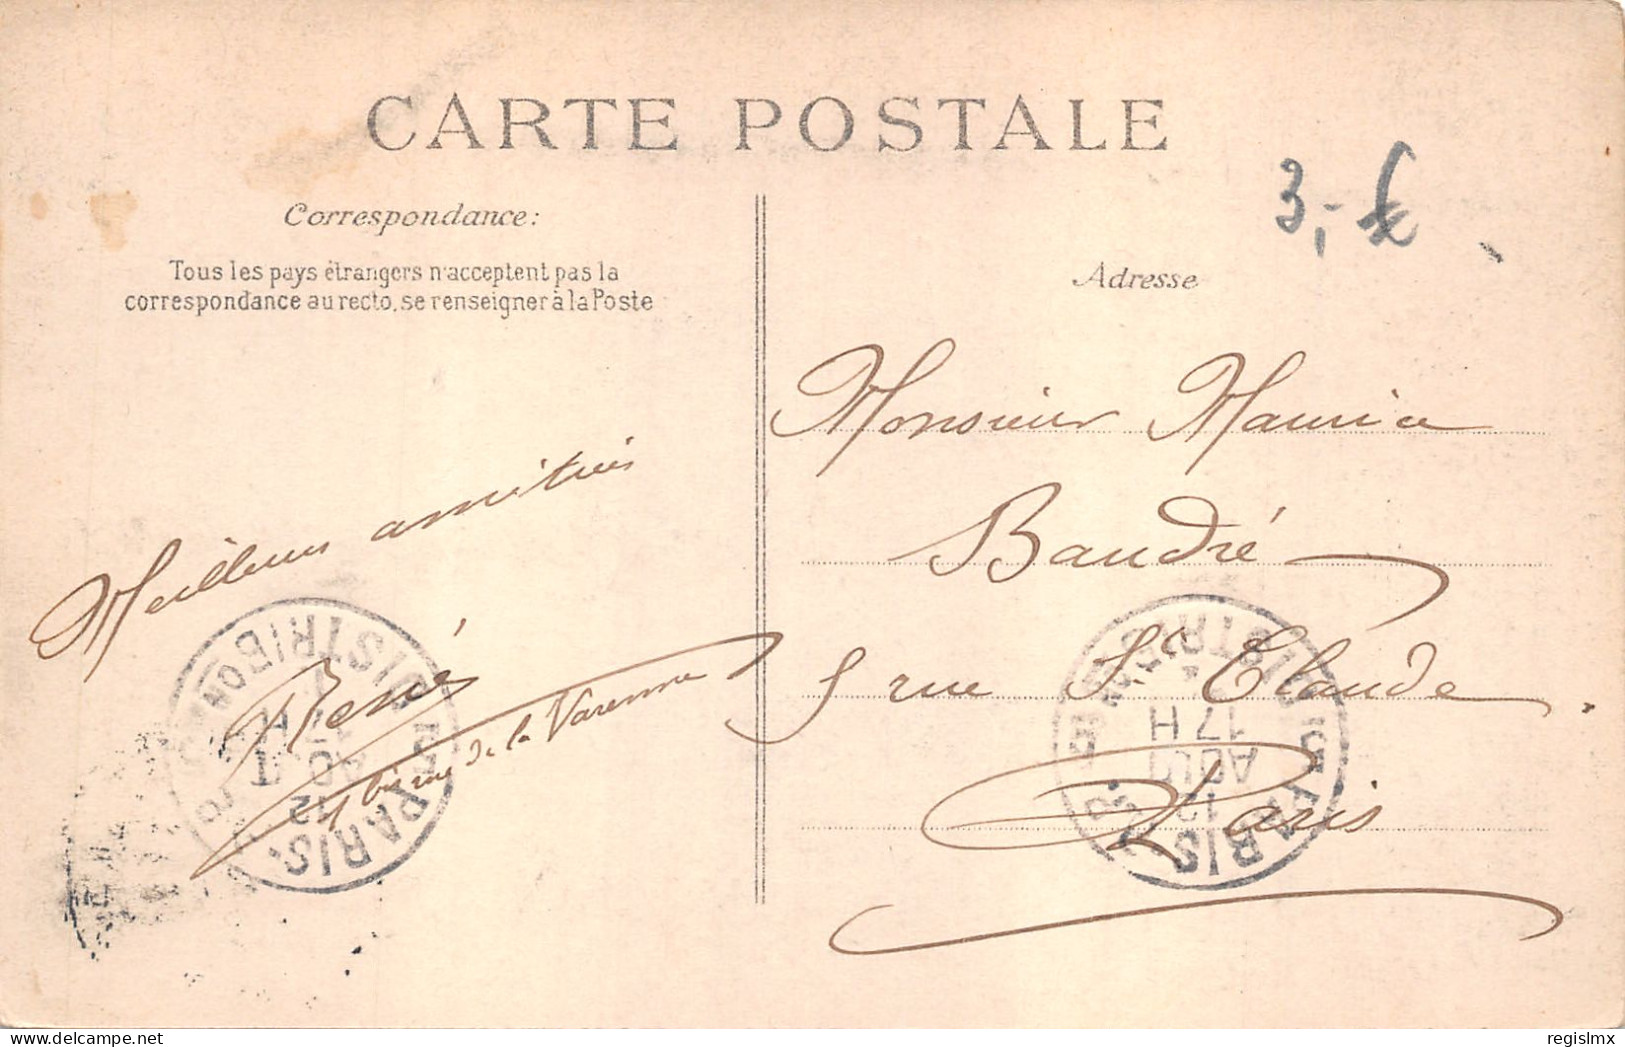 CARTE POSTALE
3,- €
Correspondance:
Tous les pays étrangers n'acceptent pas la
correspondance au recto, se renseigner à la Poste
Adresse
Monsieur Maurice
Baudré
5 rue St Claude
Paris
Meilleures amitiés
René
rue de la Varenne
PARIS. DISTRIBON
12
AOUT
PARIS. DISTRIB
12
AOUT
17 H
delcampe.net
regislmx